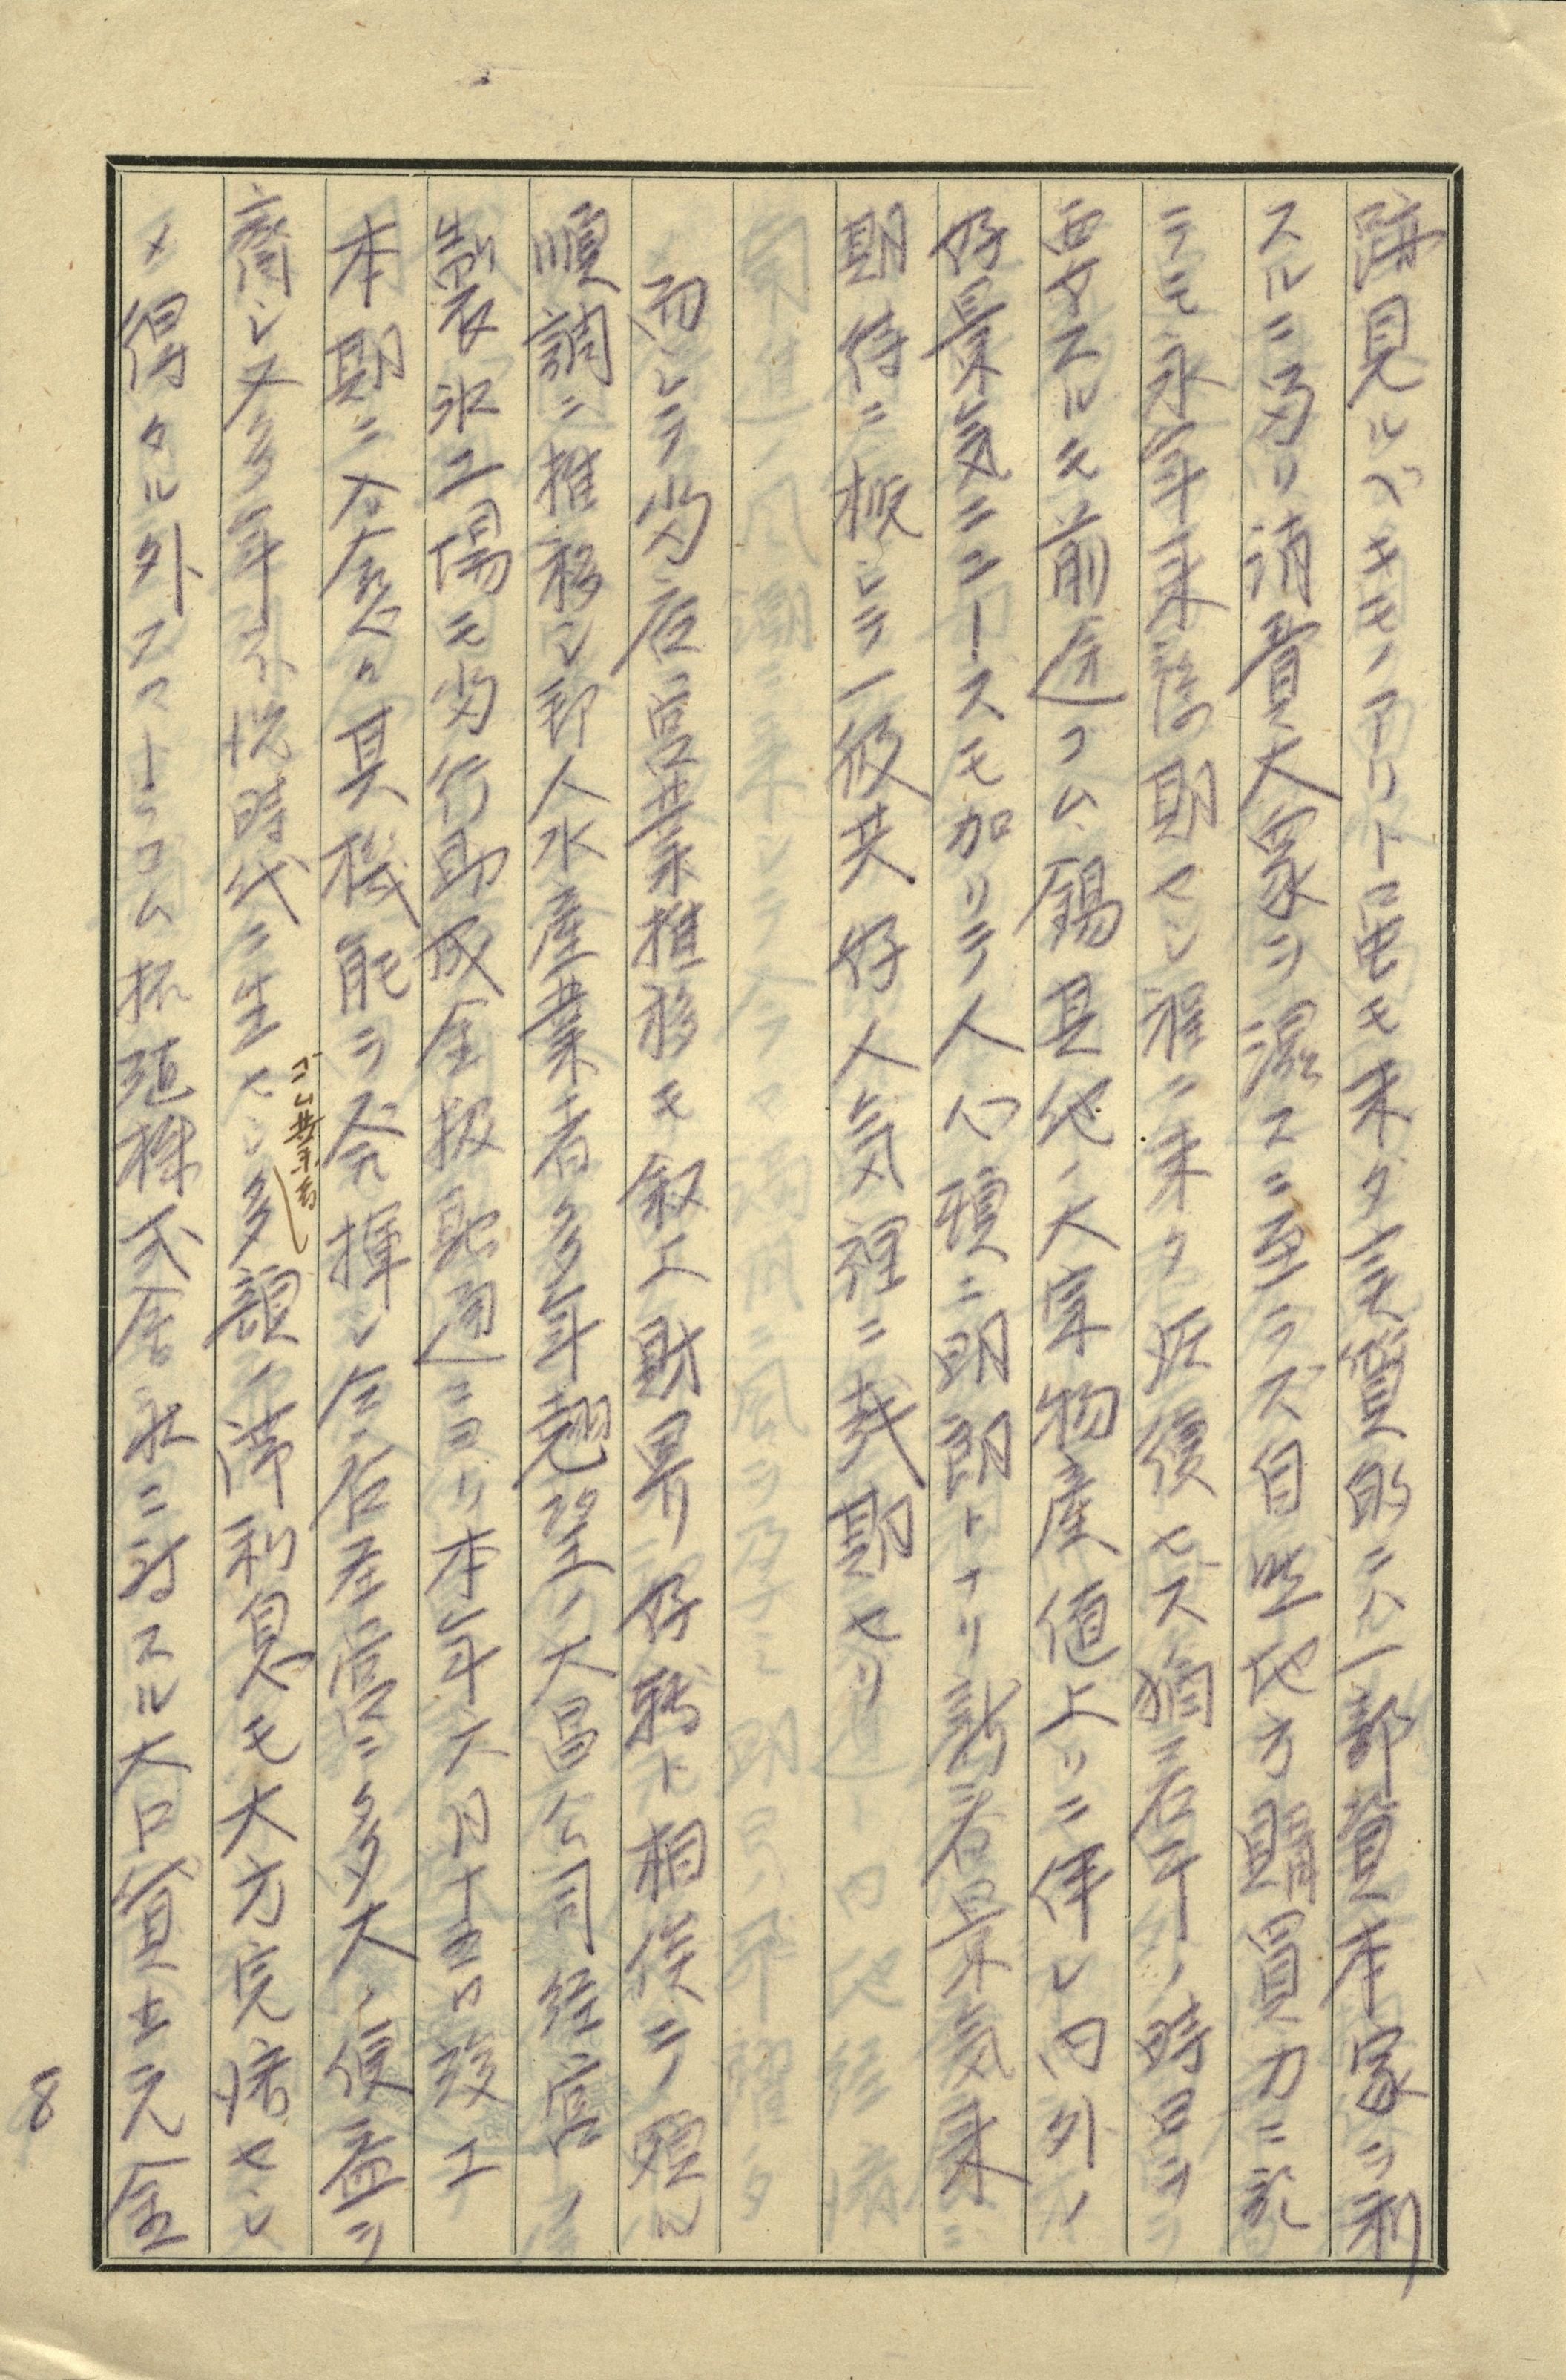 蹟見ルベキモノアリト雖モ未ダ実質的ニハ一部資本家ヲ利
スルニ留リ消費大衆ヲ潤スニ至ラズ自然地方購買力ニ訖
ラモ永年来待期セシ程ニ来タ反復セズ猶若干ノ時日ヲ
要スルモ前途ゴム、錫其他ノ大宗物産値上リニ伴レ内外ノ
好景気ニュースモ加リテ人心頭ニ明朗トナリ新春景気来
期待ニ概シテ一般共好人気裡ニ越期セリ
而シテ当店営業推移モ叙上財界ノ好転ト相俟テ頗ル
順調ニ推移シ邦人水産業者多年翹望ノ大昌公司経営ノ
製氷工場モ当行助成金扱融通ニヨリ本年六月十五日竣工
本期ニ入愈々其機能ヲ発揮シ全店在営ニ多大ノ便益ヲ
齎シ又多年不況時代ニ生セシ多額ノ滞利息モ大方完済セシ
ゴム業者
メ得タル外スマトラゴム拓殖株式会社ニ対スル大口貸出元金
8